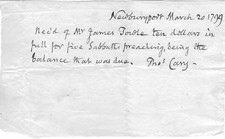 Newburyport March 20. 1799
Rec'd of Mr James Towle ten dollars in
full for five Sabbaths preaching, being the
balance that was due. Thos Cary.